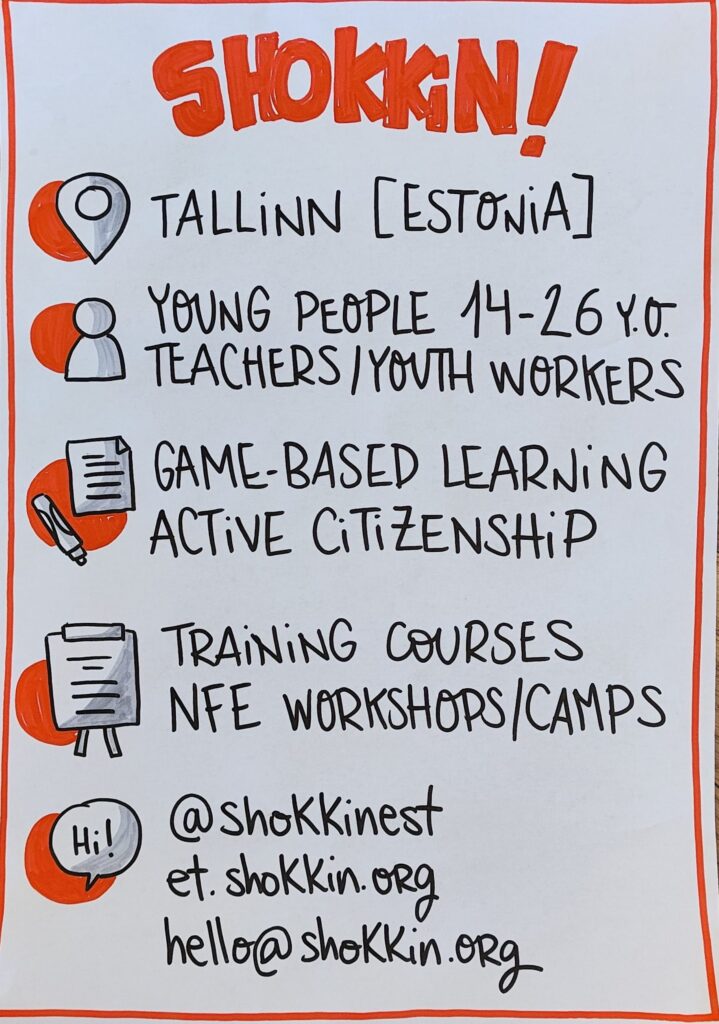 SHOKKiN!
TALLiNN [ESTONiA]
YOUNG PEOPLE 14-26 Y.O.
TEACHERS/YOUTH WORKERS
GAME-BASED LEARNiNG
ACTiVE CiTiZENSHiP
TRAiNiNG COURSES
NFE WORKSHOPS/CAMPS
Hi!
@shokkinest
et.shokkin.org
hello@shokkin.org